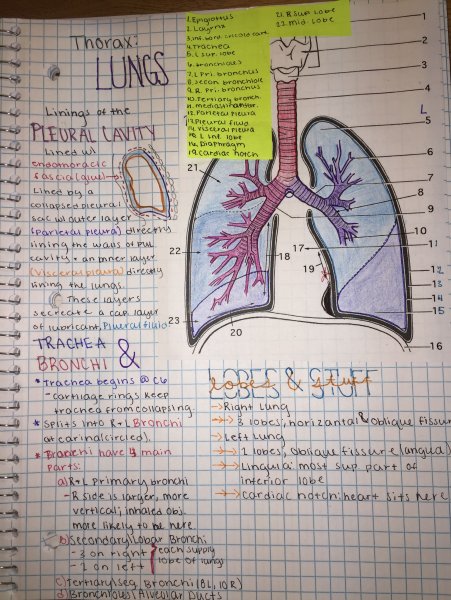 Thorax:
LUNGS
1. Epiglottis
2. Larynx
3. Inf. bord. cricoid cart.
4. Trachea
5. L sup. lobe
6. bronchioles
7. L Pri. bronchus
8. Secon. bronchiole
9. R Pri. bronchus
10. Tertiary bronch.
11. mediastinal
12. Parietal pleura
13. Pleural fluid
14. Visceral pleura
15. L inf. lobe
16. Diaphragm
19. Cardiac notch
21. R Sup lobe
22. Mid. lobe
1
2
3
4
L
5
6
7
8
9
10
11
12
13
14
15
16
17
18
19
20
21
22
23
Linings of the
PLEURAL CAVITY
Lined w/
endothoracic
fascia (glue)
Lined by a
collapsed pleural
sac w/ outer layer
(Parietal pleura) directly
lining the walls of pul.
cavity & an inner layer
(Visceral pleura) directly
lining the lungs.
These layers
secreate a cap. layer
of lubricant, Pleural fluid
TRACHEA
& BRONCHI
* Trachea begins @ C6
- cartilage rings keep
trachea from collapsing.
* Splits into R + L Bronchi
at carina (circled).
* Bronchi have 4 main
parts:
a) R + L Primary bronchi
- R side is larger, more
vertical; inhaled obj.
more likely to be here.
b) Secondary/Lobar Bronchi
- 3 on right
- 2 on left
each supply
lobe of lungs
c) Tertiary/Seg. Bronchi (8L, 10R)
d) Bronchious/Alveolar Ducts
LOBES & STUFF
→ Right Lung
→ 3 lobes; horizantal & oblique fissure
→ Left Lung
→ 2 lobes; oblique fissure (langua)
→ Lingula: most sup part of
inferior lobe
→ Cardiac notch: heart sits here